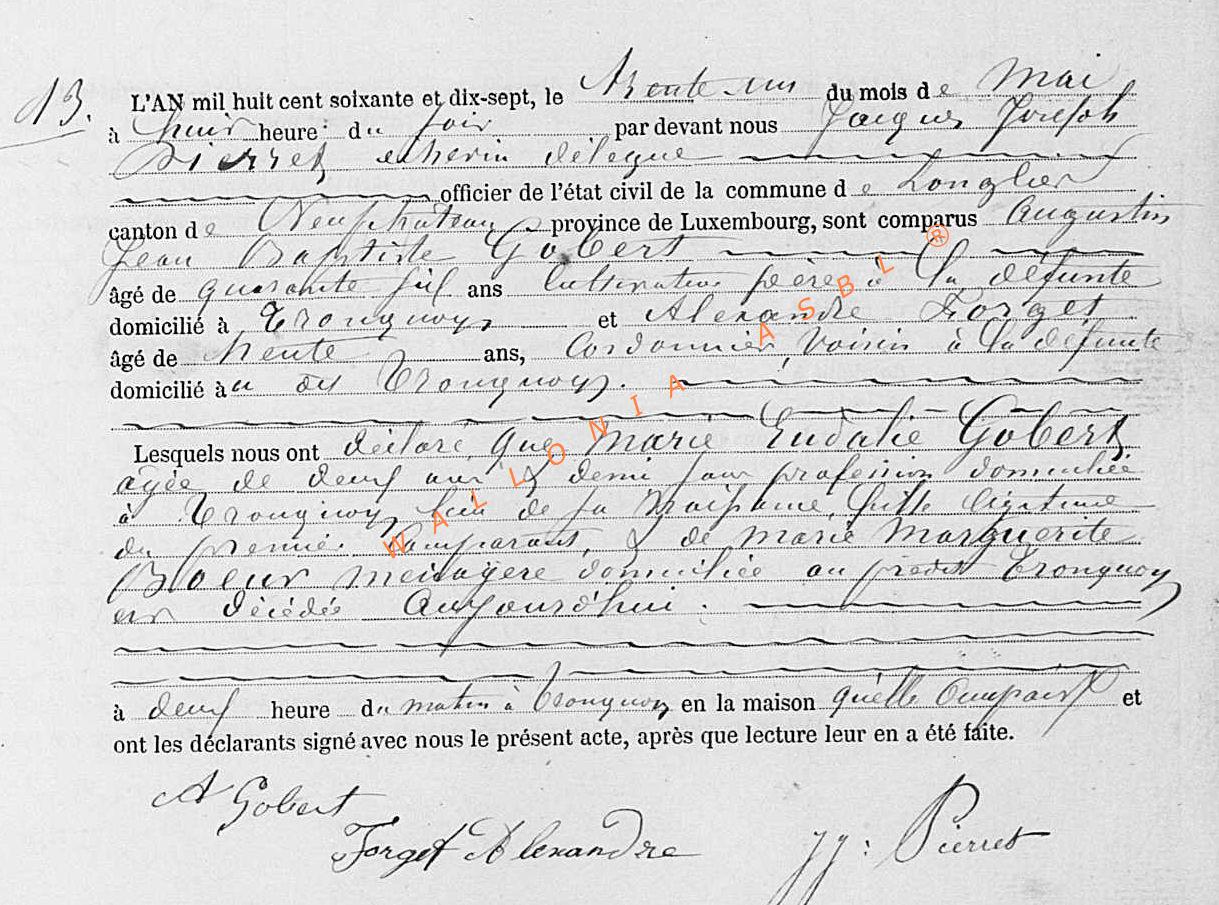 13.
L'AN mil huit cent soixante et dix-sept, le trente un du mois de Mai
à huit heure du soir par devant nous Jacques Joseph
Pierret echevin délegué
officier de l'état civil de la commune de Longlier
canton de Neufchateau province de Luxembourg, sont comparus Augustin
Jean Baptiste Gobert
âgé de quarante ans Cultivateur père à la défunte
domicilié à Tronquoy et Alexandre Forget
âgé de trente ans, Cordonnier, Voisin à la défunte
domicilié à Tronquoy.
Lesquels nous ont déclaré que Marie Eudalie Gobert
agée de deux ans & demi sans profession domiciliée
à Tronquoy lieu de sa naissance, fille légitime
du premier Comparant, & de Marie Marguerite
Boeur menagère domiciliée au predit Tronquoy
est décédée Aujourd'hui.
à deux heure du matin à Tronquoy en la maison qu'elle Occupait et
ont les déclarants signé avec nous le présent acte, après que lecture leur en a été faite.
A Gobert
Forget Alexandre
JJ: Pierret
WALLONIA ASBL ®